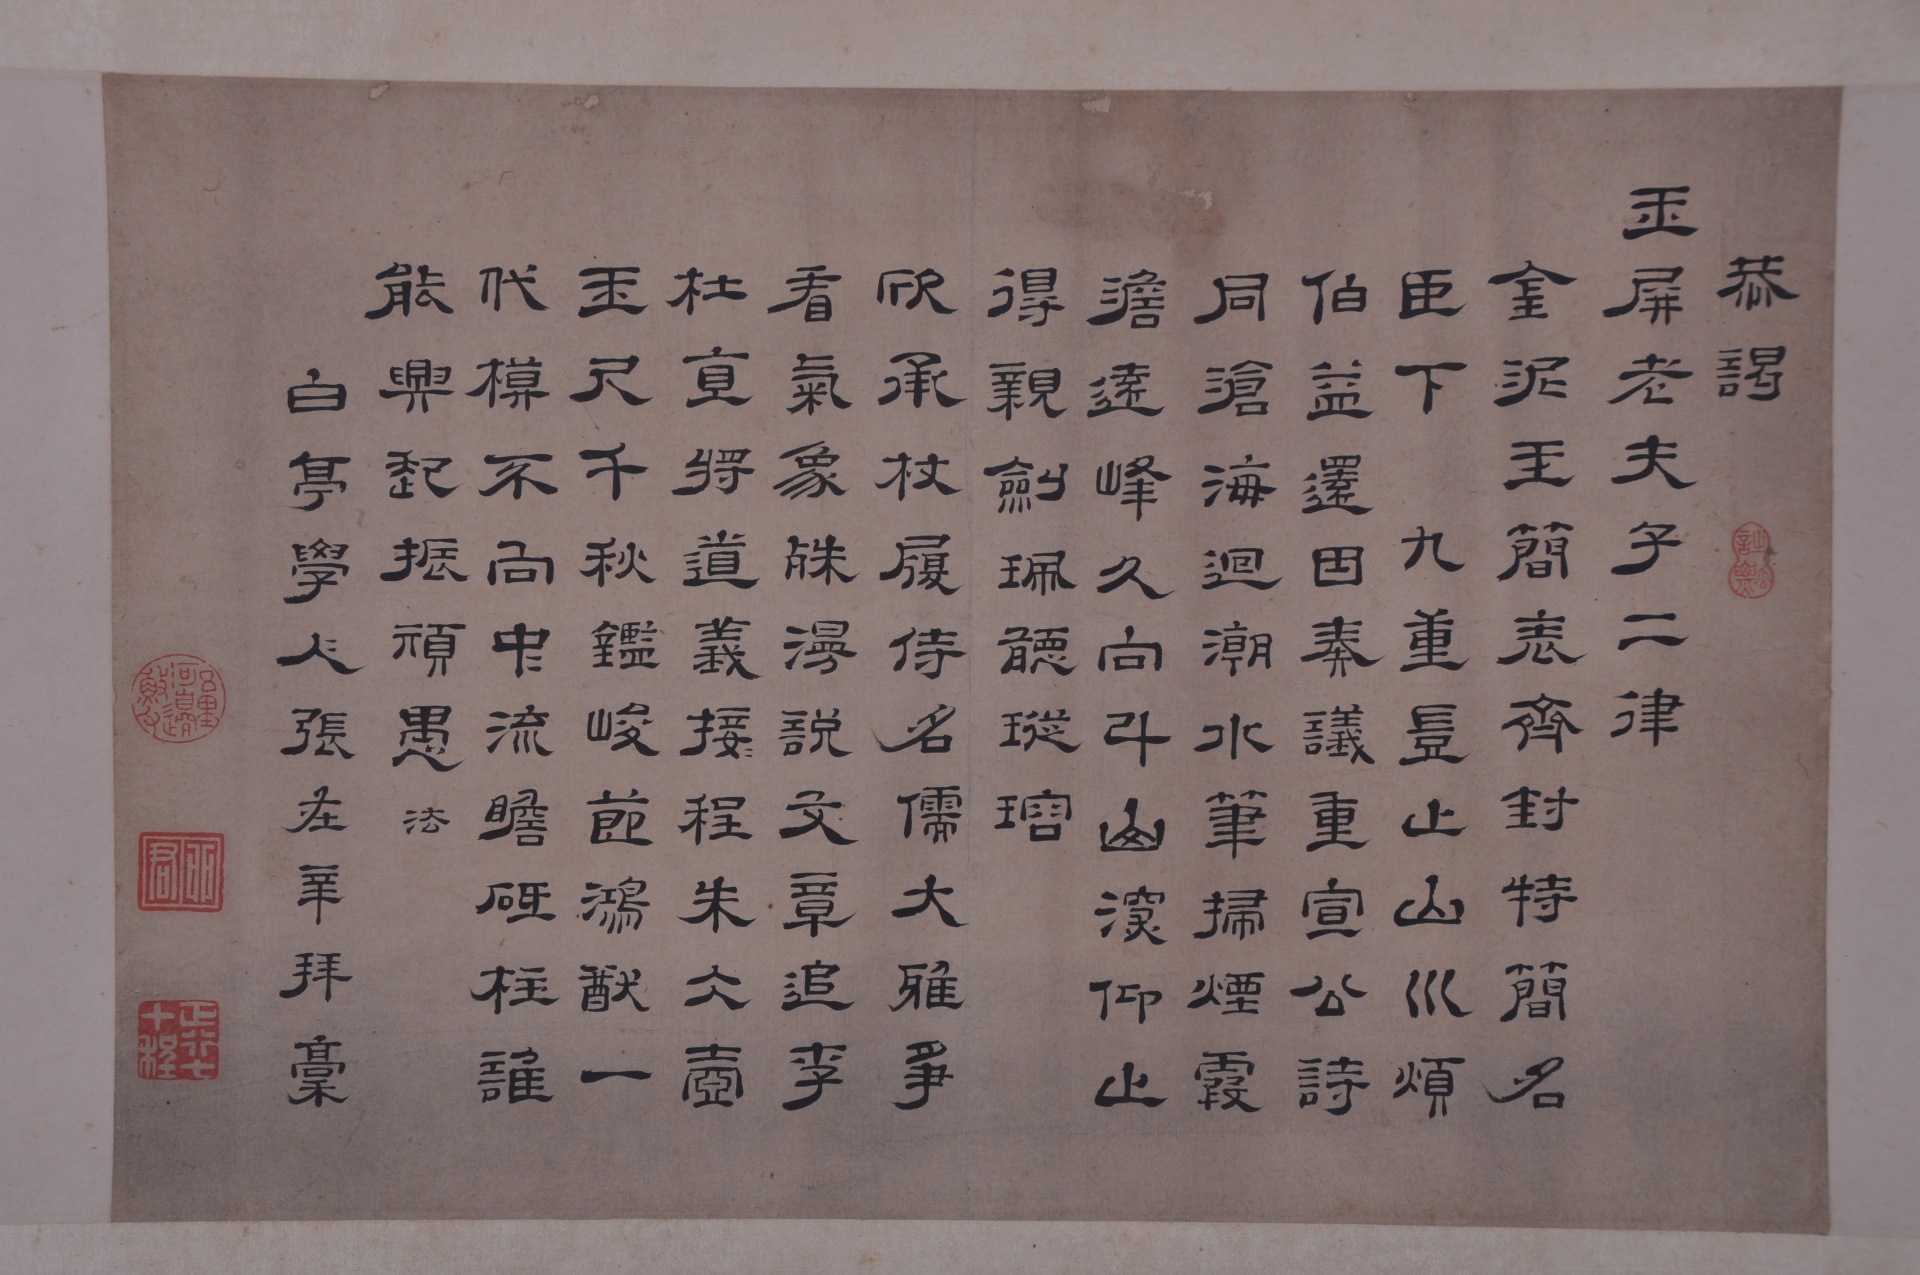 恭謁
玉屏老夫子二律
金泥玉簡表齊封特簡名
臣下九重豈止山川煩
伯益還因奏議重宣公詩
同滄海迴潮水筆掃煙霞
澹遠峰久向斗山深仰止
得親劍珮聽瑽瑢
欣承杖履侍名儒大雅爭
看氣象殊漫說文章追李
杜直將道義接程朱冰壺
玉尺千秋鑑峻節鴻猷一
代模不向中流瞻砥柱誰
能興起振頑愚法
白亭學人張在辛拜稾